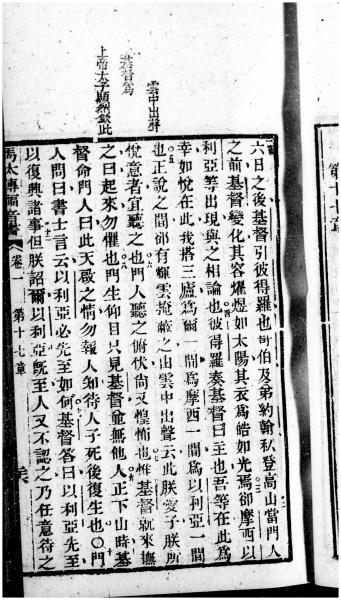 雲中出聲
基督爲
上帝太子顯然欽此
六日之後基督引彼得羅也哥伯及弟約翰私登高山當門人
之前基督變化其容燿煜如太陽其衣爲皓如光焉卻摩西以
利亞等出現與之相論也彼得羅奏基督曰主也吾等在此爲
幸如悅在此我搭三廬爲爾一間爲摩西一間爲以利亞一間
也正說之間卻有輝雲掩蔽之由雲中出聲云此朕愛子朕所
悅意者宜聽之也門人聽之俯伏尙又惶怖也惟基督就來撫
之曰起來勿懼也門生仰目只見基督並無他人正下山時基
督命門人曰此天啟之情勿報人知待人子死後復生也○門
人問曰書士言云以利亞必先至如何基督答曰以利亞先至
以復興諸事但朕詔爾以利亞旣至人又不認之乃任意待之
馬太傳福音書 卷一 第十七章